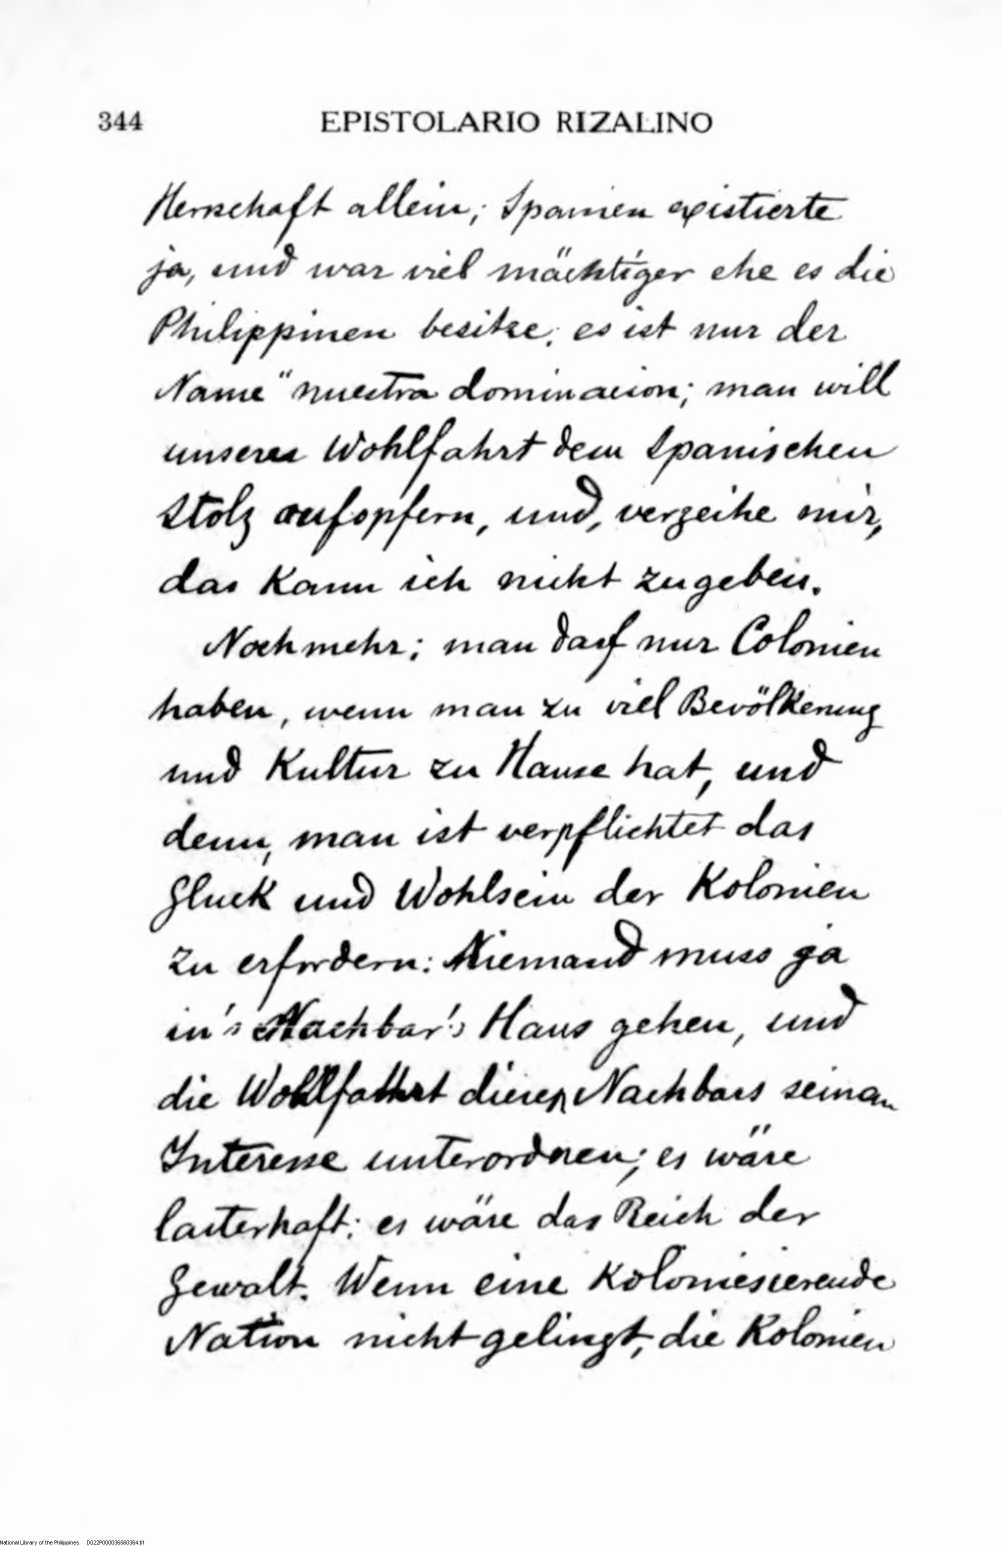 344 EPISTOLARIO RIZALINO
Herrschaft allein; Spanien existierte
ja, und war viel mächtiger ehe es die
Philippinen besitze; es ist nur der
Name "nuestra dominacion; man will
unseres Wohlfahrt dem Spanischen
Stolz aufopfern, und, verzeihe mir,
das kann ich nicht zugeben.
Noch mehr; man darf nur Colonien
haben, wenn man zu viel Bevölkerung
und Kultur zu Hause hat, und
denn, man ist verpflichtet das
Gluck und Wohlsein der Kolonien
zu erfordern: Niemand muss ja
in's Nachbar's Haus gehen, und
die Wohlfahrt dieses Nachbars seinan
Interesse unterordnen; es wäre
lasterhaft: es wäre das Reich der
Gewalt. Wenn eine Koloniesierende
Nation nicht gelingt, die Kolonien
National Library of the Philippines D022P000036580364.tif